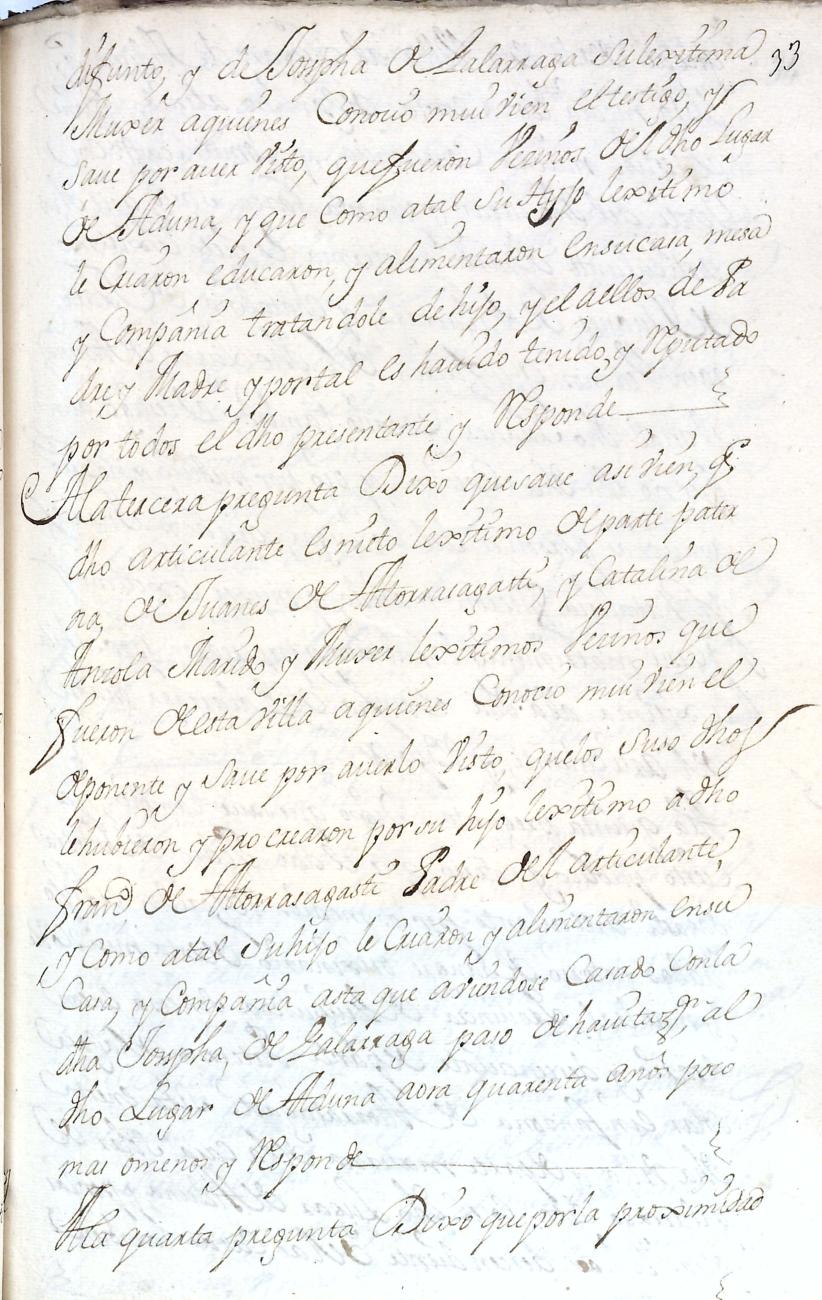 33
difunto, y de Josepha de Lalarraga su lexitima
Muxer aquienes Conocio mui vien el testigo, y
save por aver visto, que fueron Vecinos del dho Lugar
de Aduna, y que Como atal su Hijo lexitimo
le Criaron educaron, y alimentaron en su casa, mesa
y Compañia tratandole de hijo, y el a ellos de Pa
dre y Madre y por tal es havido tenido y Reputado
por todos el dho presentante y Responde
A la tercera pregunta Dixo que save asi vien, q
dho articulante es nieto lexitimo de parte pater
na, de Juanes de Atorrasagasti, y Catalina de
Anzola Marido y Muxer lexitimos Vecinos que
fueron de esta Villa aquienes Conocio mui vien el
deponente y save por averlo Visto, que los suso dhos
le hubieron y procrearon por su hijo lexitimo a dho
Franco de Atorrasagasti Padre del articulante,
y Como atal su hijo le Criaron y alimentaron en su
Casa, y Compañia asta que aviendose Casado con la
dha Josepha, de Lalarraga paso de havitazon, al
dho Lugar de Aduna aora quarenta años poco
mas omenos y Responde
A la quarta pregunta Dixo que por la proximidad